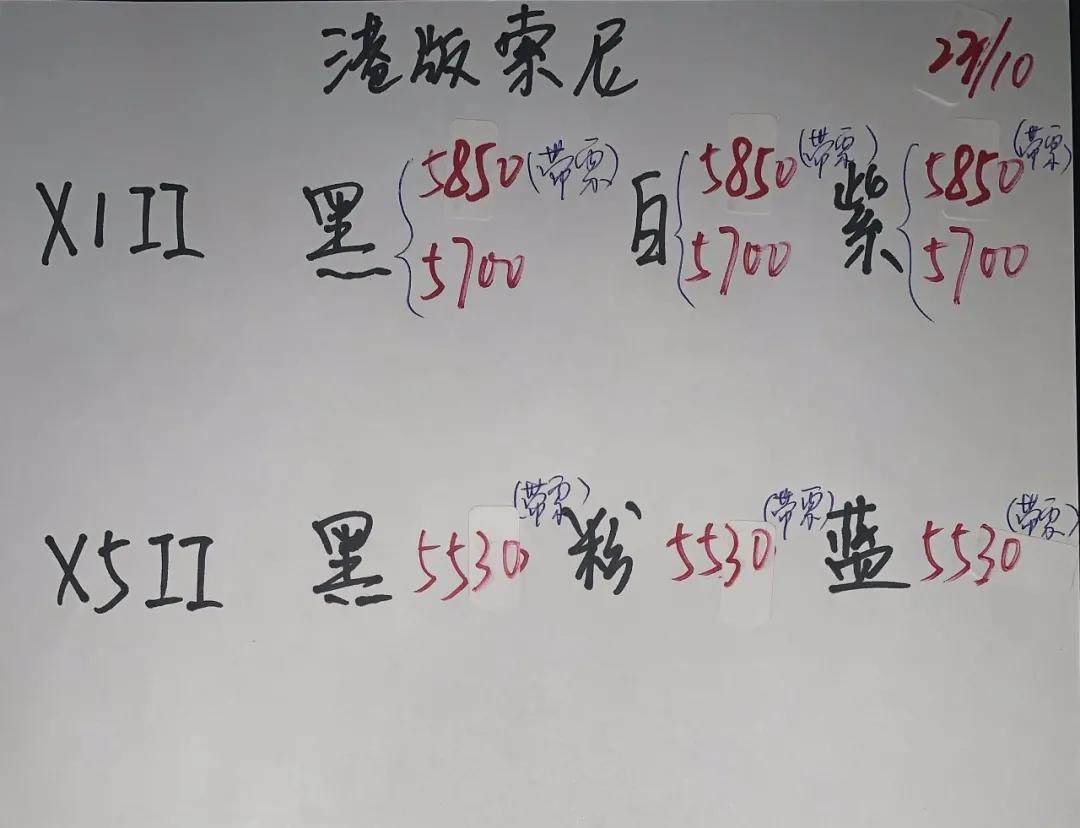 港版索尼
X1II 黑 5850(带票) 5700 白 5850(带票) 5700 紫 5850(带票) 5700
X5II 黑 5530(带票) 粉 5530(带票) 蓝 5530(带票)